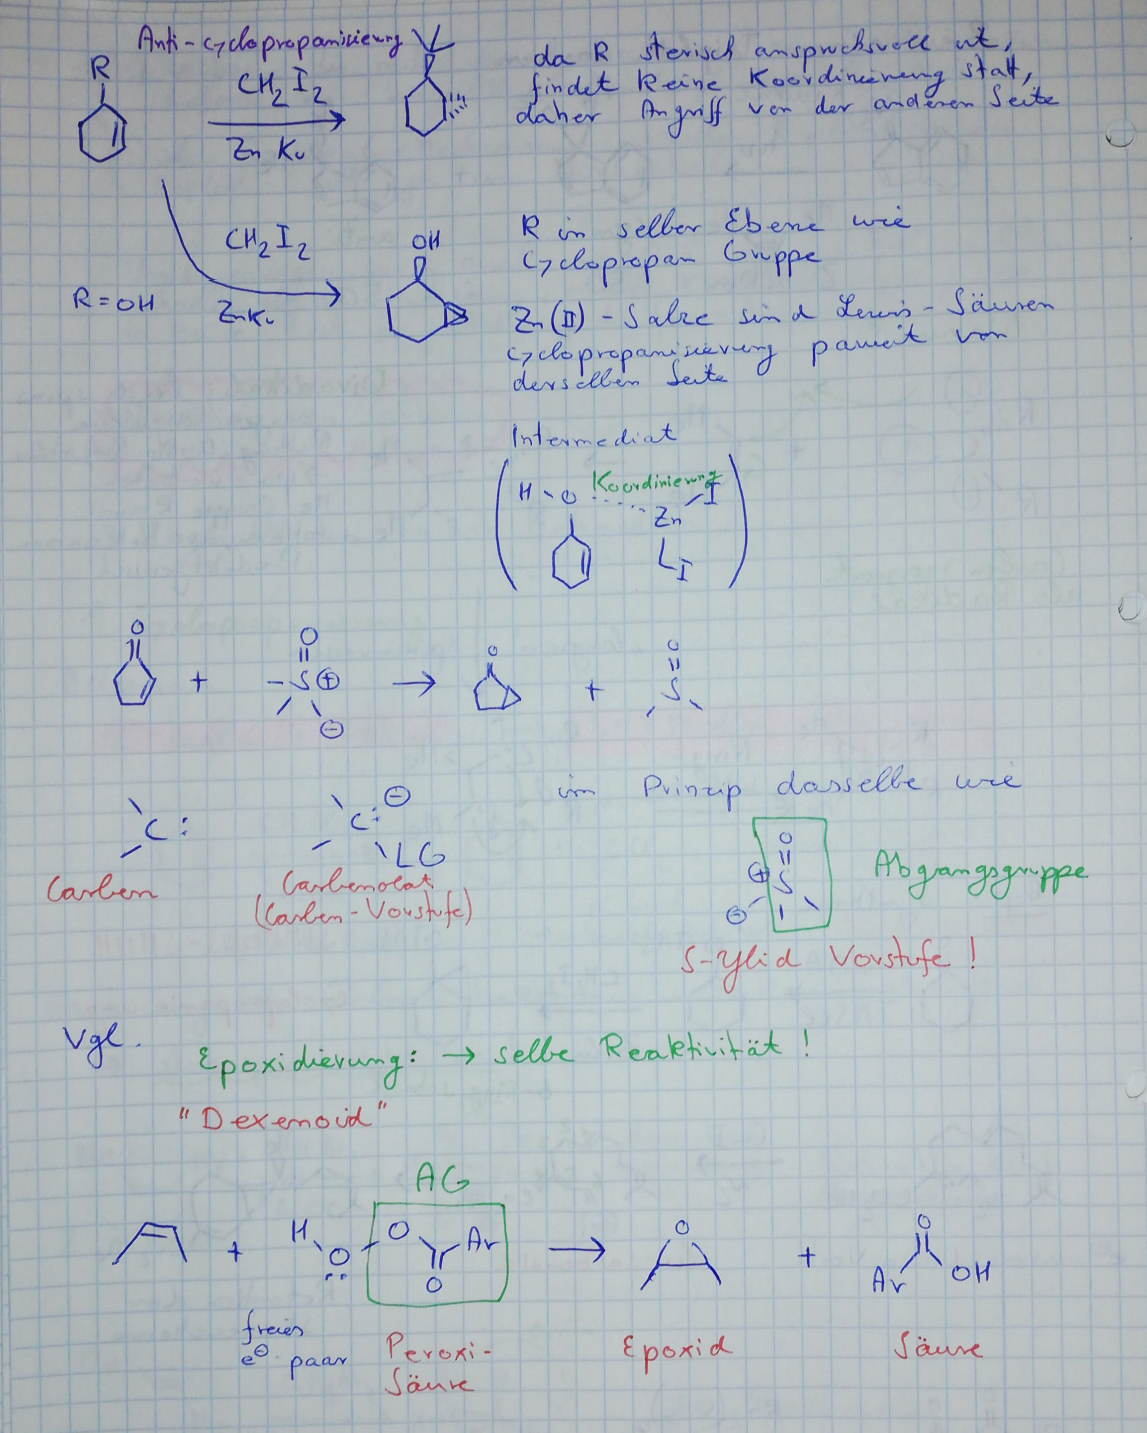 Anti-Cyclopropanisierung
R
CH2I2
Zn Ku
da R sterisch anspruchsvoll ist,
findet keine Koordinierung statt,
daher Angriff von der anderen Seite
R=OH
CH2I2
ZnKu
OH
R in selber Ebene wie
Cyclopropan Gruppe
Zn(II)-Salze sind Lewis-Säuren
Cyclopropanisierung von
derselben Seite
Intermediat
Koordinierung
H O Zn I
I
O + O S ⊕ ⊖ → O + O S
im Prinzip dasselbe wie
C:
Carben
C: ⊖
LG
Carbenoat
(Carben-Vorstufe)
O
⊕ S
⊖
Abgangsgruppe
S-Ylid Vorstufe!
Vgl.
Epoxidierung: → selbe Reaktivität!
"Dexenoid"
AG
+ H O O Ar O → O + O Ar OH
freies
e⊖ paar
Peroxi-
Säure
Epoxid
Säure